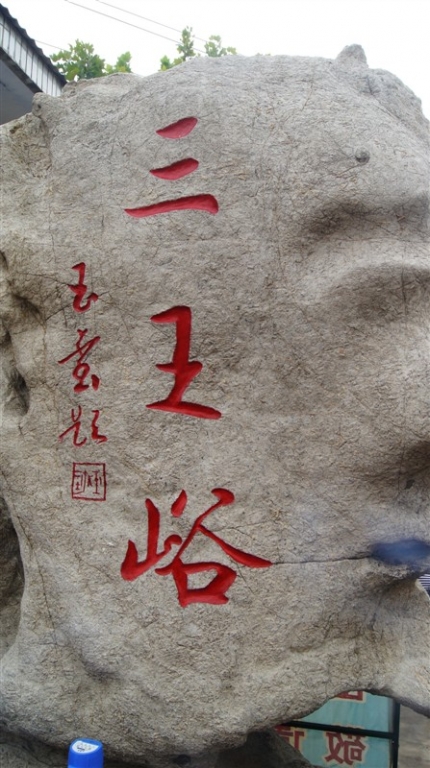 三王峪
玉堂题